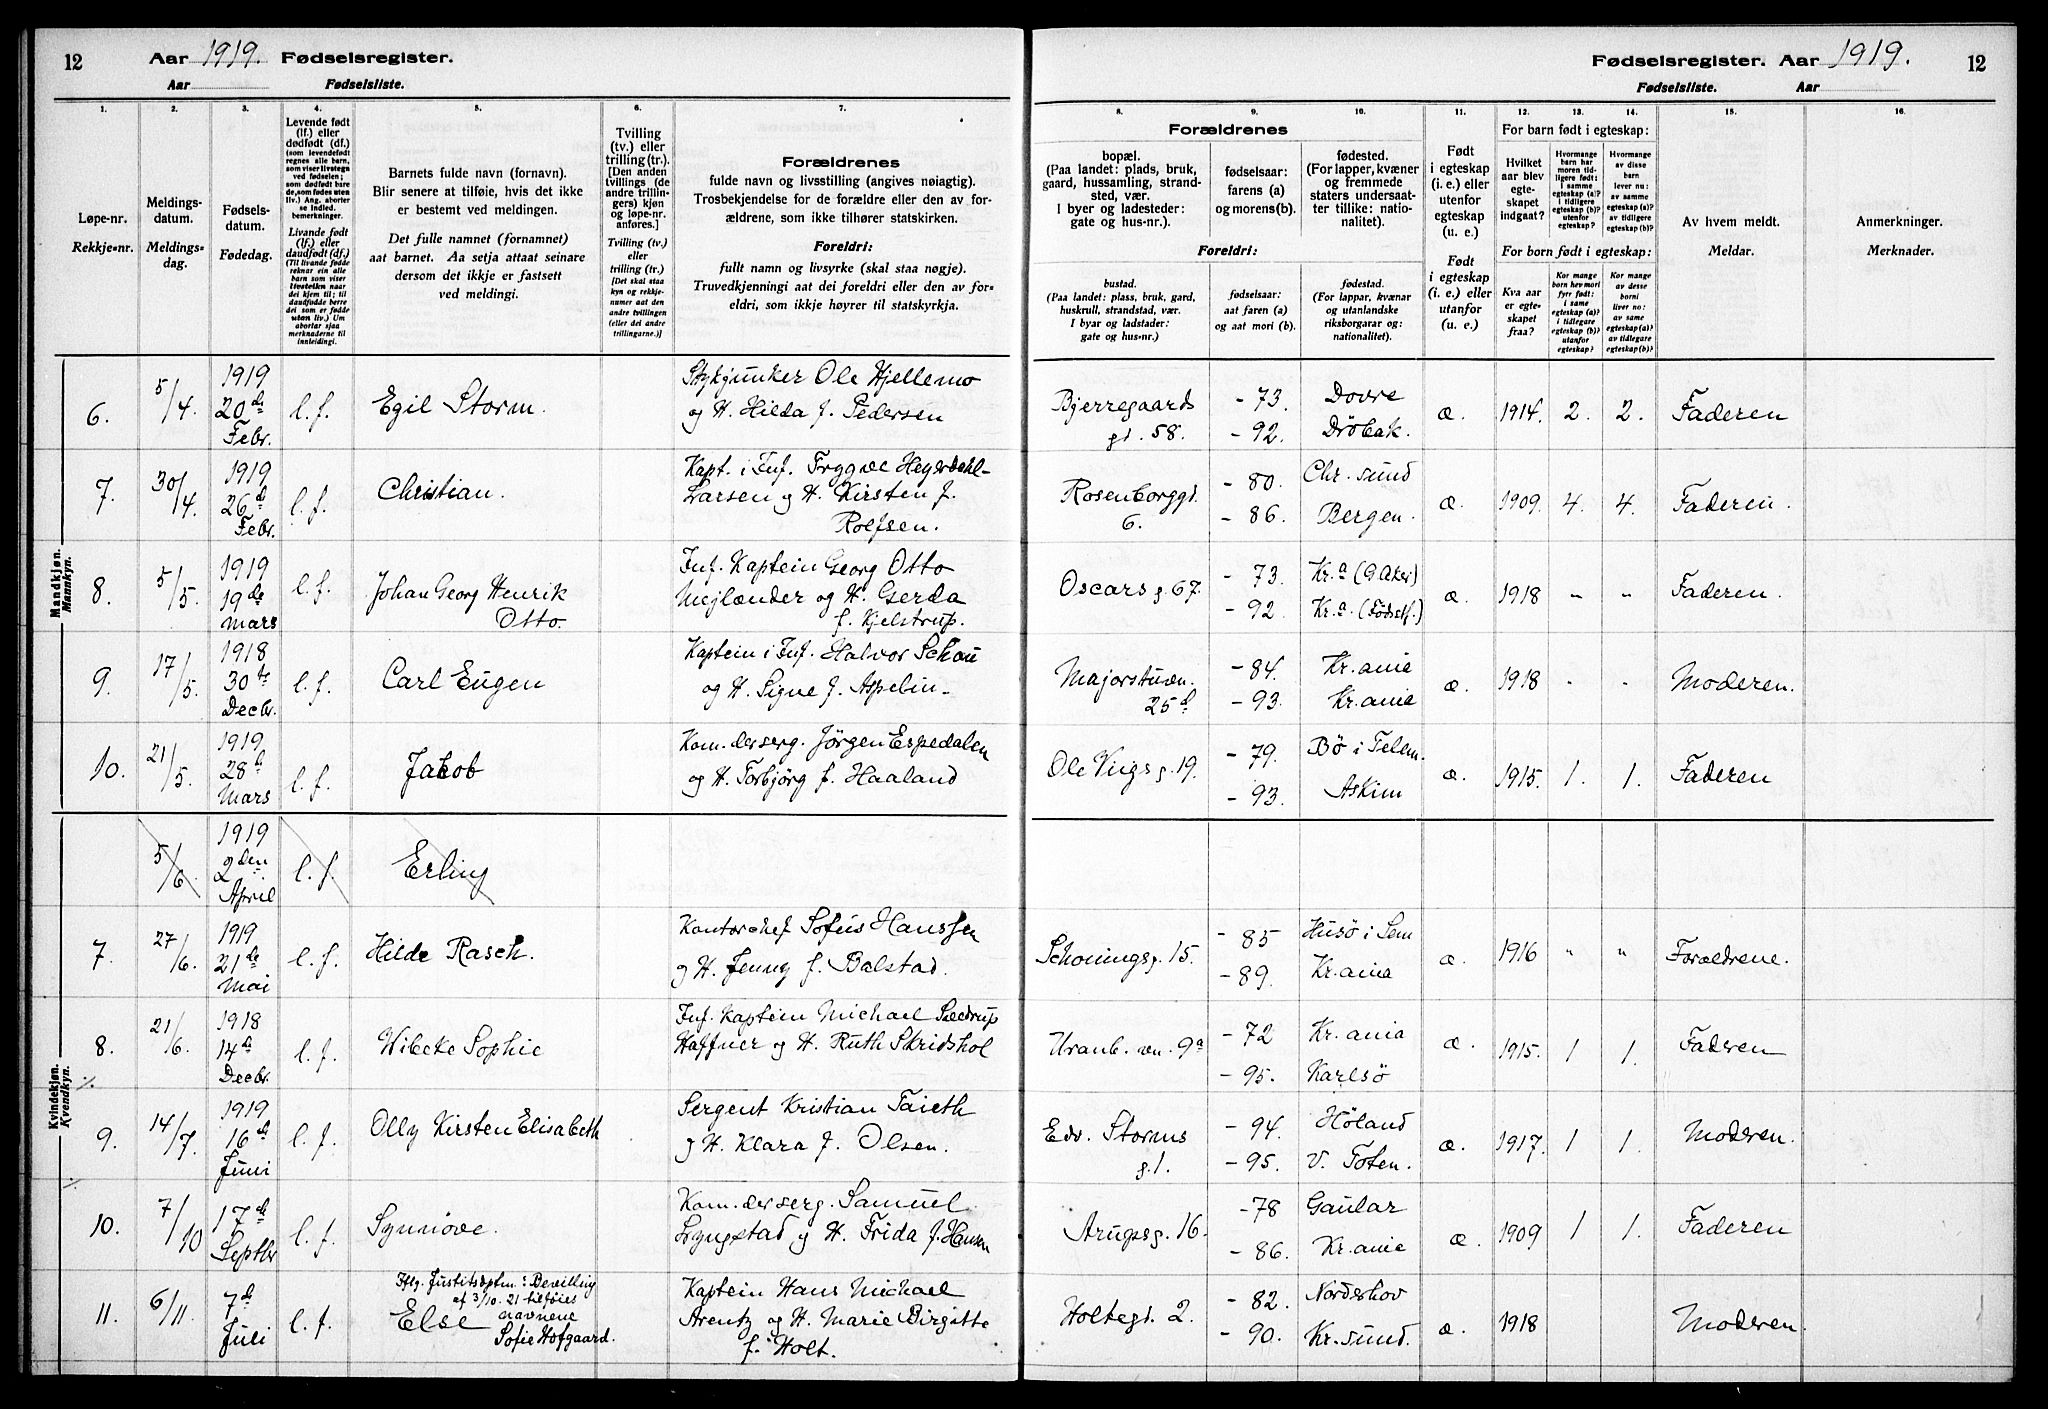 12 Aar 1919. Fødselsregister.
Aar Fødselsliste.
Fødselsregister. Aar 1919. 12
Fødselsliste. Aar
1. 2. 3. 4. 5. 6. 7.
Løpe-nr.
Rekkje-nr.
Meldings-
datum.
Meldings-
dag.
Fødsels-
datum.
Fødedag.
Levende født
(lf.) eller
dødfødt (df.)
Livande født
(lf.) eller
daudfødt (df.)
Barnets fulde navn (fornavn).
Blir senere at tilføie, hvis det ikke
er bestemt ved meldingen.
Det fulle namnet (fornamnet)
aat barnet. Aa setja attaat seinare
dersom det ikkje er fastsett
ved meldingi.
Tvilling
(tv.) eller
trilling (tr.).
[Den anden
tvillings (de
andre trillin-
gers) kjøn
og løpe-nr.
anføres.]
Tvilling (tv.)
eller
trilling (tr.)
[Det skal staa
kyn og rekkje-
numer aat den
andre tvillingen
(eller dei andre
trillingarne.)]
Forældrenes
fulde navn og livsstilling (angives nøiagtig).
Trosbekjendelse for de forældre eller den av for-
ældrene, som ikke tilhører statskirken.
Foreldri:
fullt namn og livsyrke (skal staa nøgje).
Truvedkjenningi aat dei foreldri eller den av for-
eldri, som ikkje høyrer til statskyrkja.
8. 9. 10. 11. 12. 13. 14. 15. 16.
Forældrenes
bopæl.
(Paa landet: plads, bruk,
gaard, hussamling, strand-
sted, vær.
I byer og ladesteder:
gate og hus-nr.).
Foreldri:
bustad.
(Paa landet: plass, bruk, gard,
huskrull, strandstad, vær.
I byar og ladstader:
gate og hus-nr.)
fødselsaar:
farens (a)
og morens (b).
fødselsaar:
aat faren (a)
og aat mori (b).
fødested.
(For lapper, kvæner
og fremmede
staters undersaat-
ter tillike: natio-
nalitet).
fødestad.
(For lappar, kvænar
og utanlandske
riksborgarar og:
nationalitet).
Født
i egteskap
(i. e.) eller
utenfor
egteskap
(u. e.)
Født
i egteskap
(i. e.) eller
utanfor
(u. e.)
For barn født i egteskap:
Hvilket
aar blev
egte-
skapet
indgaat?
For born født i egteskap:
Kva aar
er egte-
skapet
fraa?
Av hvem meldt.
Meldar.
Anmerkninger.
Merknader.
Mandkjøn.
Mannkyn.
6. 5/4. 1919 20de Febr. l. f. Egil Storm. Stykjunker Ole Hjellemo
og H. Hilda f. Pedersen
Bjerregaards
gt. 58. - 73. - 92. Dovre Dröbak. æ. 1914. 2. 2. Faderen
7. 30/4. 1919 26d Febr. l. f. Christian. Kapt. i Inf. Tryggve Heyerdahl-
Larsen og H. Kirsten f.
Rolfsen.
Rosenborggt.
6. - 80. - 86. Chr. sund Bergen. æ. 1909. 4. 4. Faderen.
8. 5/5. 1919 19de Mars l. f. Johan Georg Henrik
Otto. Inf. Kaptein Georg Otto
Mejlænder og H. Gerda
f. Kjelstrup.
Oscars g. 67. - 73. - 92. Kr.a (G. Aker) Kr.a (Fødst.) æ. 1918 " " Faderen.
9. 17/5. 1918 30te Decbr. l. f. Carl Eugen Kaptein i Inf. Halvor Schou
og H. Signe f. Aspelin.
Majorstuvn.
25d - 84. - 93. Kr.ania Kr.ania æ. 1918 " " Moderen.
10. 21/5. 1919 28d Mars l. f. Jakob Kom.derserg. Jørgen Espedalen
og H. Torbjörg f. Haaland
Ole Viigs g. 19. - 79. - 93. Bö i Telem. Askim æ. 1915. 1. 1. Faderen
Kvindekjøn.
Kvendkyn.
5/6. 1919 2den April l. f. Erling
7. 27/6. 1919 21de Mai l. f. Hilde Rasch. Kontorchef Sofus Hanssen
og H. Jenny f. Balstad.
Schonings g. 15. - 85 - 89. Husö i Sem Kr.ania æ. 1916 " " Forældrene.
8. 21/6. 1918 14d Decbr. l. f. Wibecke Sophie Inf. Kaptein Michael Sundrup
Haffner og H. Ruth Skridshol
Uranb. vn. 9a - 72 - 95. Kr.ania Karlsö æ. 1915. 1 1. Faderen
9. 14/7. 1919 16d Juni l. f. Olly Kirsten Elisabeth Sergent Kristian Taieth
og H. Klara f. Olsen.
Edv. Storms
g. 1. - 94. - 95. Höland V. Toten. æ. 1917. 1 1. Moderen.
10. 7/10 17de Septbr l. f. Synnöve. Kom.derserg. Samuel
Lyngstad og H. Frida f. Hansen
Arupsg. 16. - 78 - 86. Gaular Kr.ania æ. 1909 1 1. Faderen
11. 6/11. 7d Juli l. f. Iflg. Justitsdptm: Bevilling
af 3/10. 21 tilføies
Else navnene
Sofie Hofgaard. Kaptein Hans Michael
Arentz og H. Marie Birgitte
f. Holt.
Holtegt. 2. - 82. - 90. Nordshov Kr.sund. æ. 1918 Moderen.